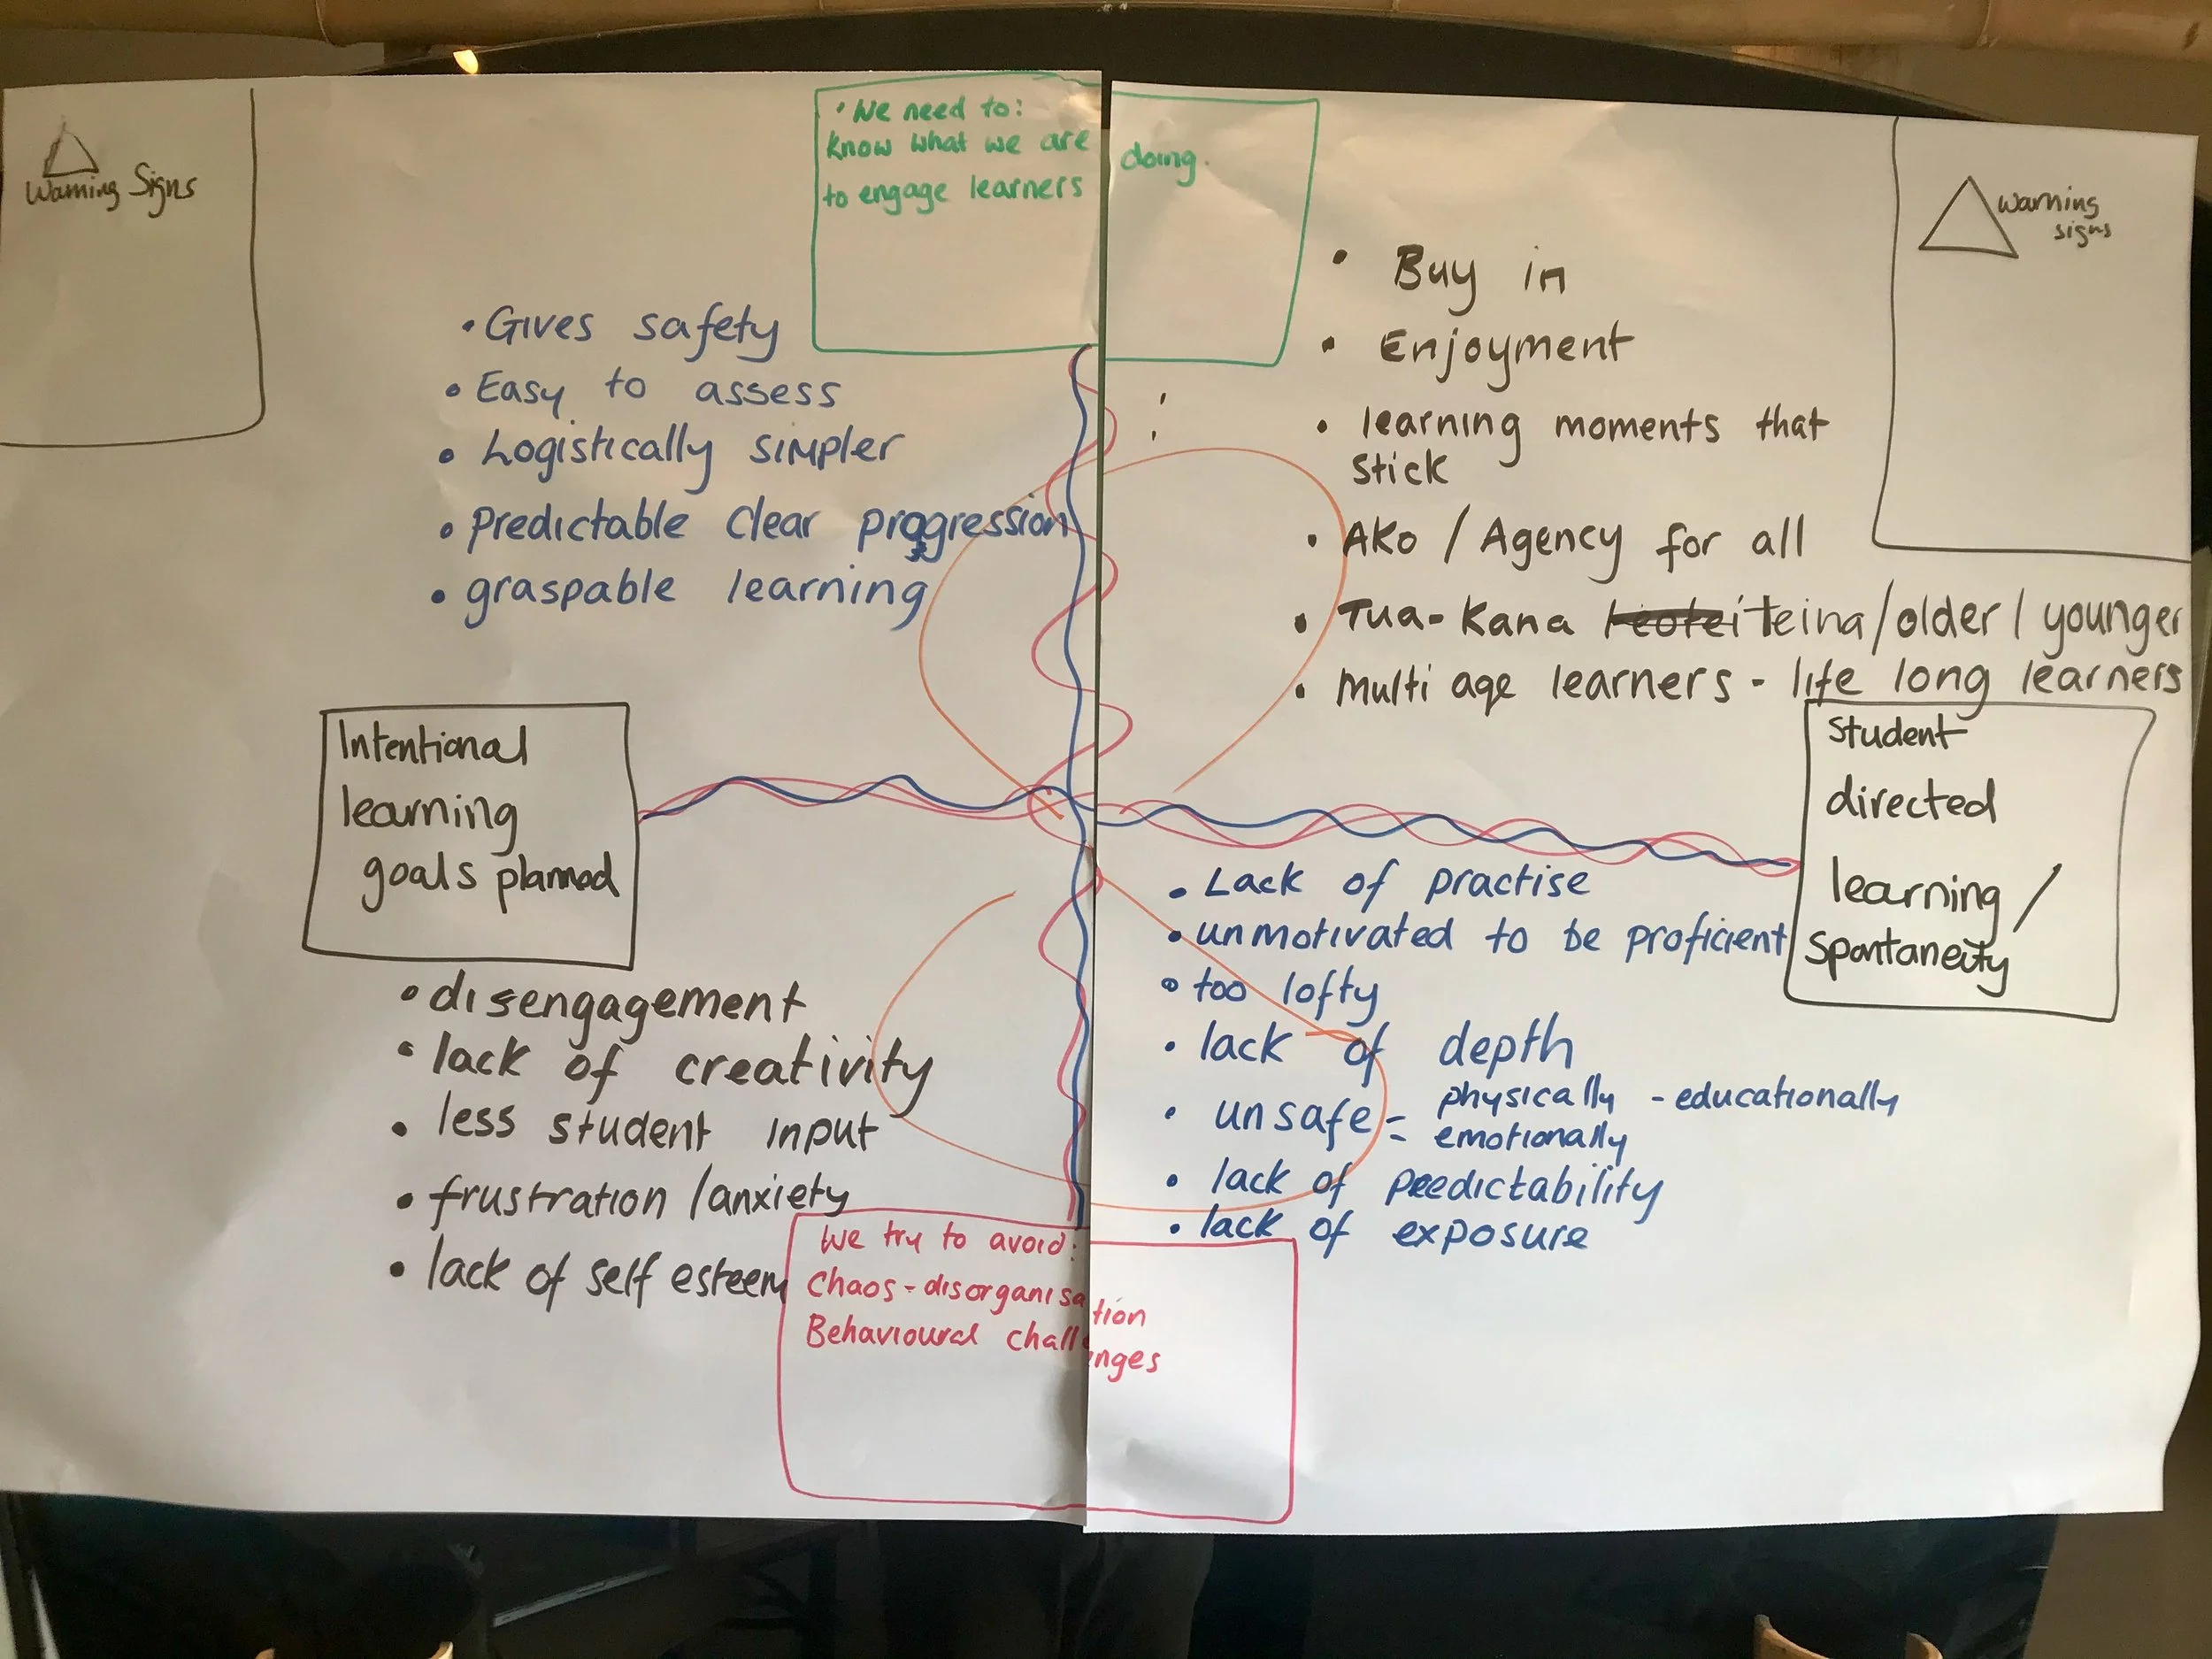 Warning Signs
• We need to:
Know what we are doing.
to engage learners
warning
signs
• Gives safety
• Easy to assess
• Logistically simpler
• predictable clear progression
• graspable learning
• Buy in
• Enjoyment
• learning moments that
stick
• AKo / Agency for all
• Tua-Kana Teina/older/younger
• Multi age learners - life long learners
Intentional
learning
goals planned
Student
directed
learning /
Spontaneity
• disengagement
• lack of creativity
• less student input
• frustration /anxiety
• lack of self esteem
• Lack of practise
• unmotivated to be proficient
• too lofty
• lack of depth
• unsafe = physically - educationally
emotionally
• lack of predictability
• lack of exposure
We try to avoid:
Chaos - disorganisation
Behavioural challenges